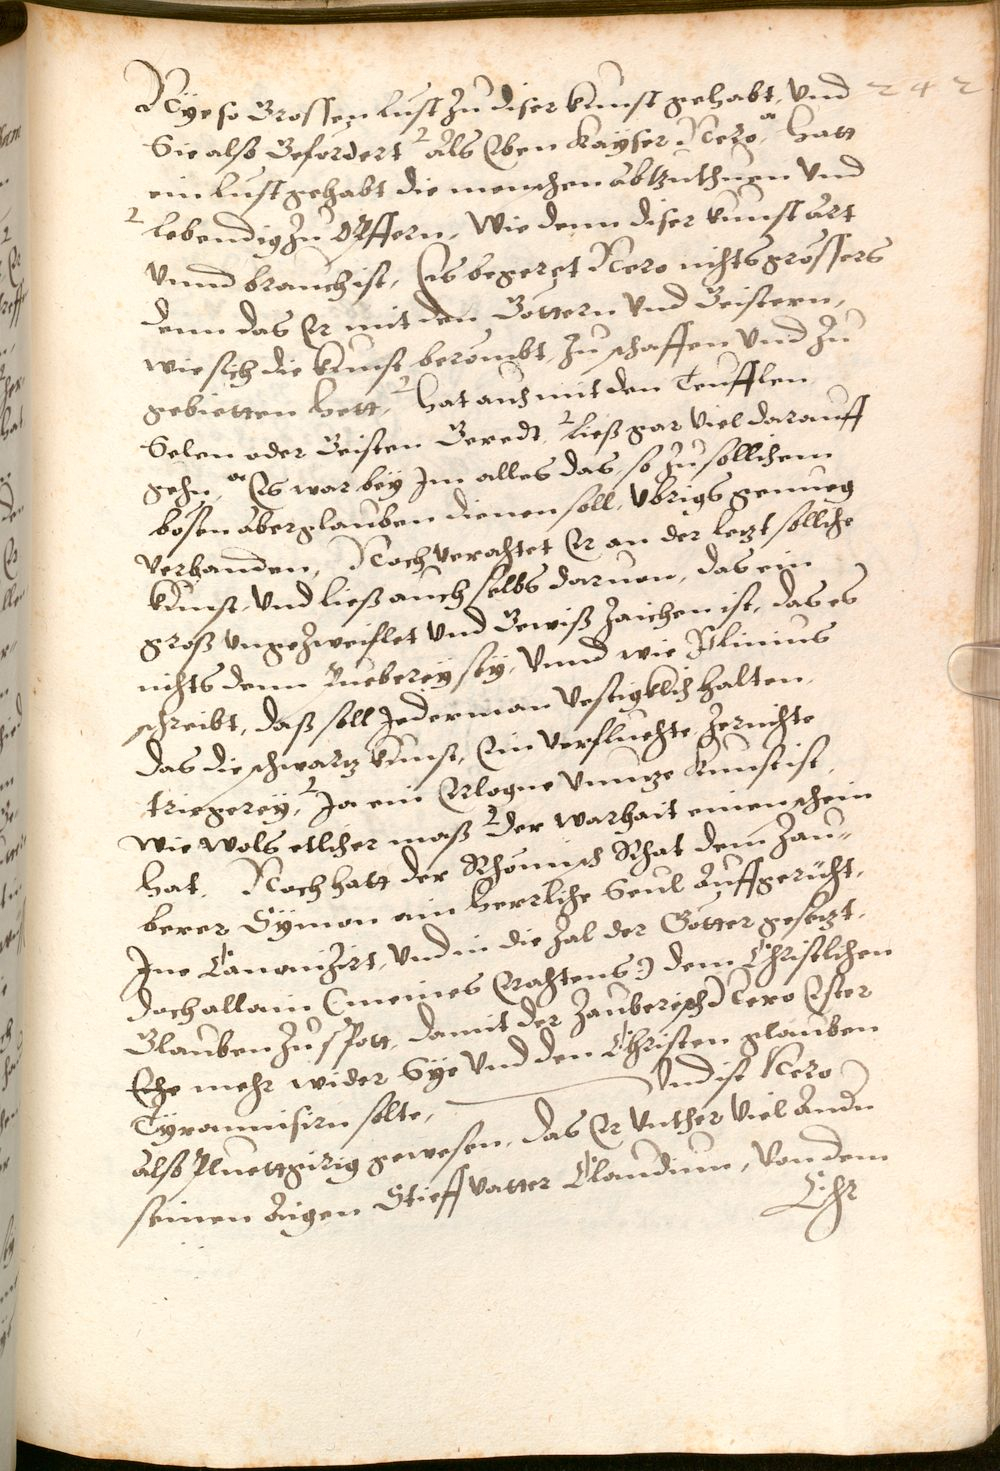 Nye so Grossen lust zu diser kunst gehabt, und 242
Sie also Befördert als Eben Kayser Nero, Hatt
ein lust gehabt die menschen abzuthuen und
lebendig zu Opffern, Wie denn diser kunst art
unnd brauch ist, Es begeret Nero nichts grössers
denn das Er mit den Göttern und Geistern,
wie sich die kunst berömbt, zu schaffen und zu
gebietten hett, hat auch mit den Teufflen
Selen oder Geisten Geredt, ließ gar viel darauff
gehn, Es war bey Im alles das, so zu sollichem
bösen aberglauben dienen soll, ubrigs genueg
verhanden, Noch verachtet Er an der letzt solliche
kunst, und ließ auch selbs daruon, das ein
groß ungezweiflet und Gewiß zaichen ist, das es
nichts denn Bueberey sey, unnd wie Plinius
schreibt, daß soll Jederman vestigklich halten
das die schwartz kunst, Ein verfluchte zernichte
triegerey, Ja ein Erlogne unnutze kunst ist,
wie wols etlicher maß der warhait einen schein
hat. Noch hatt der Rhömisch Rhat dem zau-
berer Symon ain herrliche Seul Auffgericht,
Ine Canonizirt, und in die zal der Götter gesetzt,
doch allain (meines Erachtens) dem Christlichen
Glauben zu spott, damit der zauberisch Nero Ester
Ehe mehr wider Sye und den Christen glauben
Tyrannisirn solte, Und ist Nero
also Bluettgirig gewesen, das Er unther viel Andn
seinen Aigen Stieffvatter Claudium, von dem
Ehr